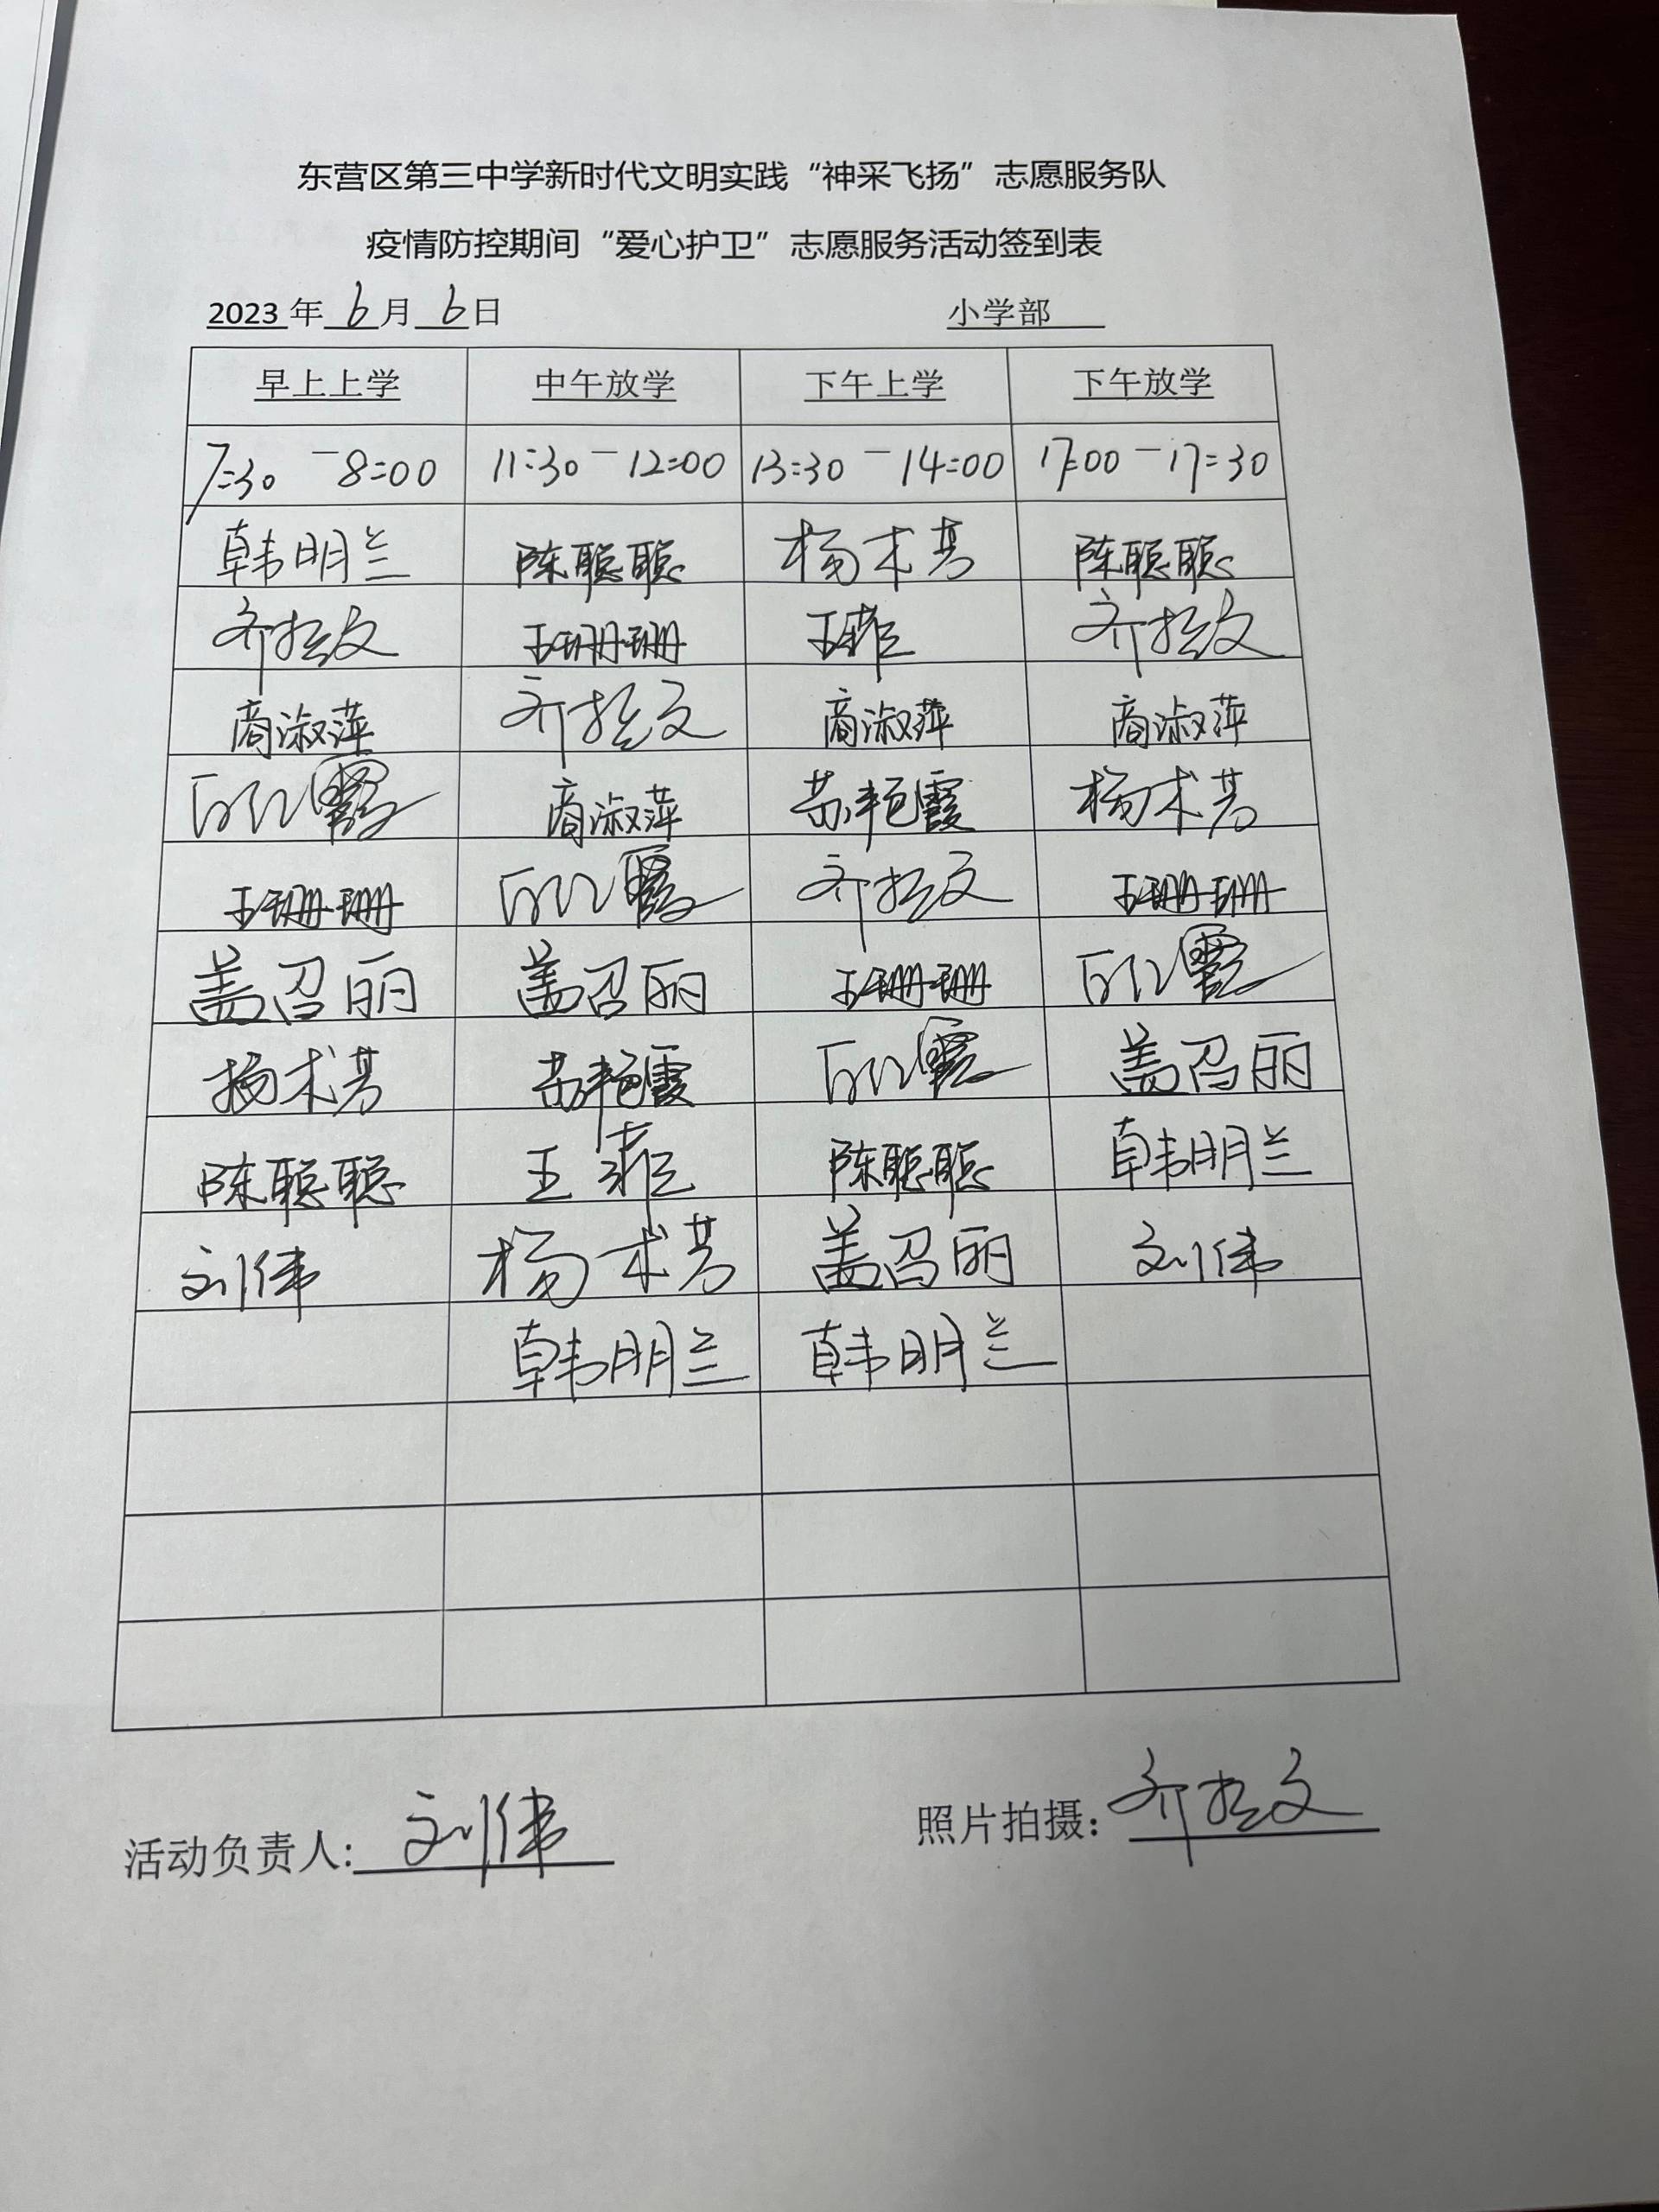 东营区第三中学新时代文明实践“神采飞扬”志愿服务队
疫情防控期间“爱心护卫”志愿服务活动签到表
2023 年 6 月 6 日 小学部
早上上学 中午放学 下午上学 下午放学
7:30 — 8:00 11:30 — 12:00 13:30 — 14:00 17:00 — 17:30
韩明兰 陈聪聪 杨术芳 陈聪聪
王珊珊 王菲
商淑萍 商淑萍 商淑萍
商淑萍 苏艳霞 杨术芳
王珊珊 王珊珊
盖召丽 盖召丽 王珊珊
杨术芳 苏艳霞 盖召丽
陈聪聪 王菲 陈聪聪 韩明兰
刘伟 杨术芳 盖召丽 刘伟
韩明兰 韩明兰
活动负责人: 刘伟 照片拍摄: